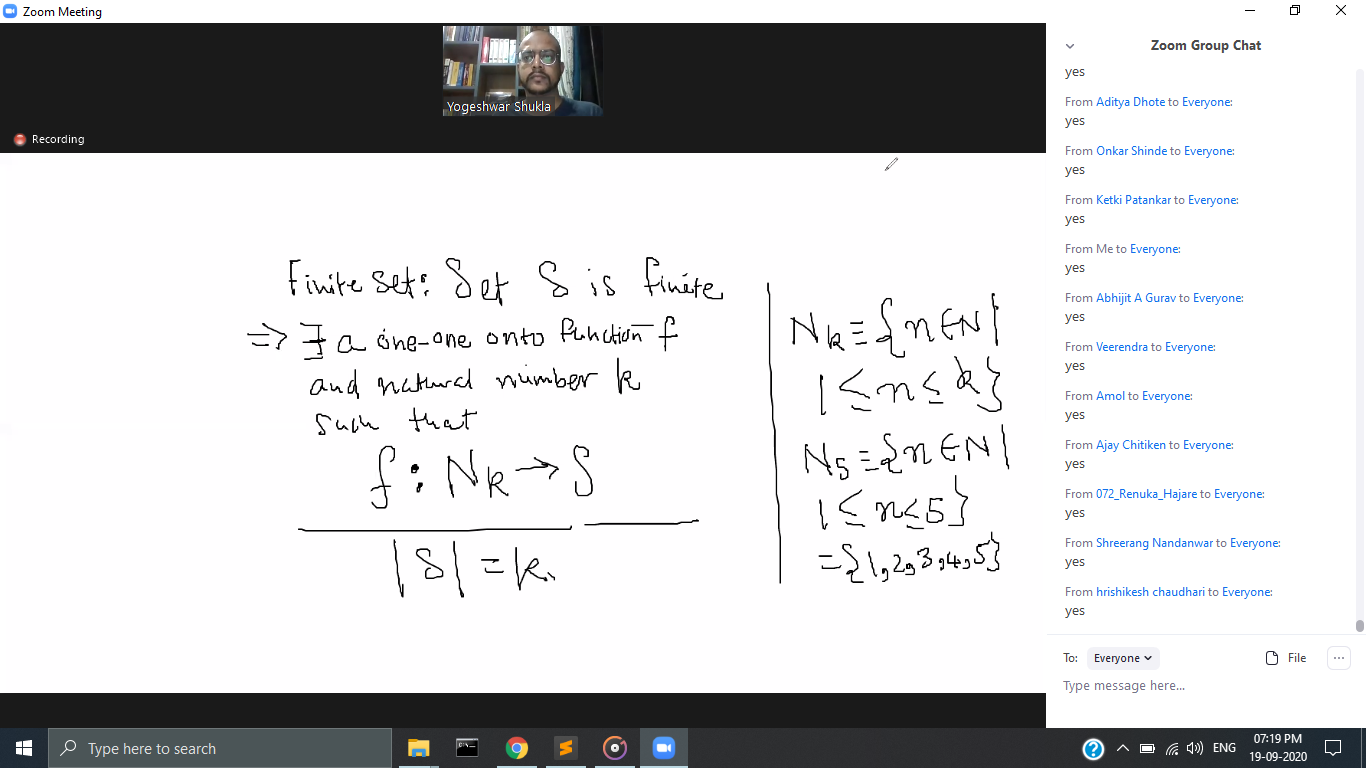 Zoom Meeting
Yogeshwar Shukla
Recording
Finite set: Set S is finite
=> ∃ a one-one onto function f
and natural number k
such that
f : Nk → S
|S| = k.
Nk ≡ {n ∈ N |
1 ≤ n ≤ k}
N5 ≡ {n ∈ N |
1 ≤ n ≤ 5}
= {1, 2, 3, 4, 5}
Zoom Group Chat
yes
From Aditya Dhote to Everyone:
yes
From Onkar Shinde to Everyone:
yes
From Ketki Patankar to Everyone:
yes
From Me to Everyone:
yes
From Abhijit A Gurav to Everyone:
yes
From Veerendra to Everyone:
yes
From Amol to Everyone:
yes
From Ajay Chitiken to Everyone:
yes
From 072_Renuka_Hajare to Everyone:
yes
From Shreerang Nandanwar to Everyone:
yes
From hrishikesh chaudhari to Everyone:
yes
To: Everyone File ...
Type message here...
Type here to search
ENG
07:19 PM
19-09-2020